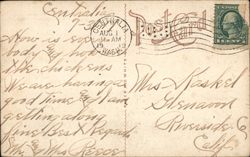 Centralia
How is every
body and how
the chickens
We are having a
good time & I am
getting along
fine Best Regards
Mr & Mrs Reece
CENTRALIA
AUG 1
AM
WASH.
Post Card
Mrs Haskel
Glenavon
Riverside Co
Calif